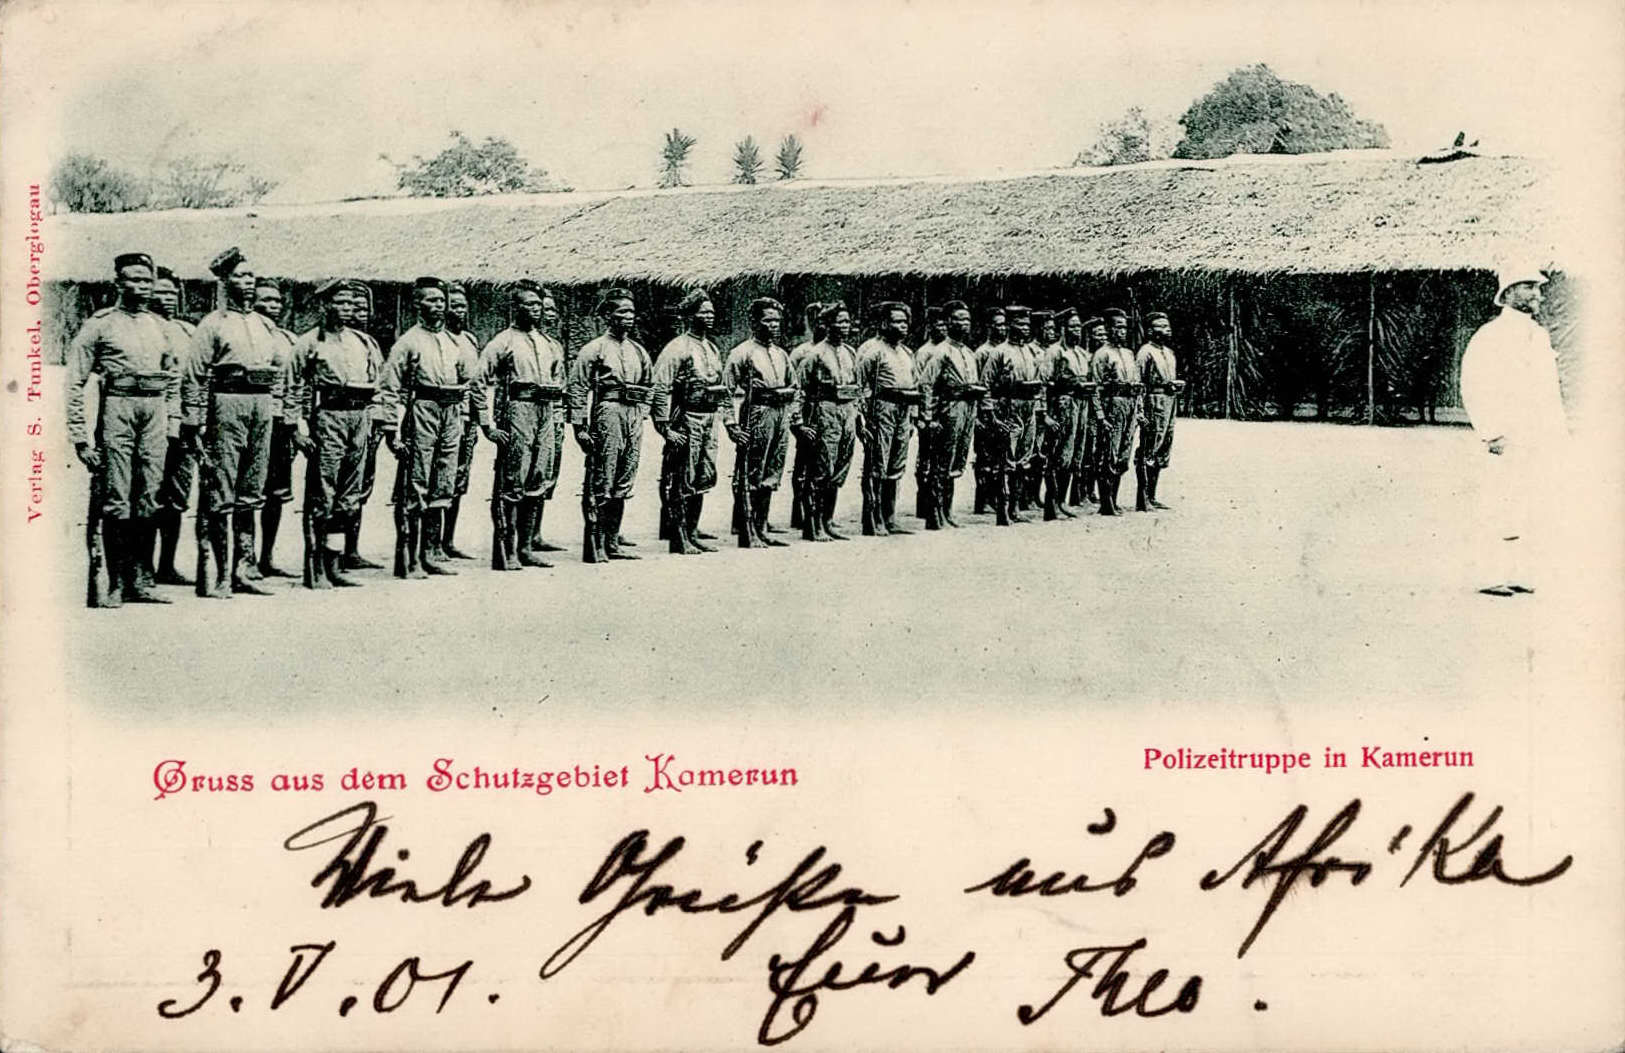 Verlag S. Tunkel, Oberglogau
Gruss aus dem Schutzgebiet Kamerun
Polizeitruppe in Kamerun
Viele Grüße aus Afrika
3. V. 01. Euer Theo.